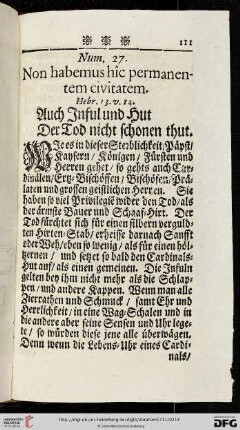 111
Num. 27.
Non habemus hîc permanen-
tem civitatem.
Hebr. 13. v. 14.
Auch Inful und Hut
Der Tod nicht schonen thut.
Wie es in dieser Sterblichkeit / Päpst /
Kaysern / Königen / Fürsten und
Herren gehet / so gehts auch Car-
dinälen / Ertz-Bischöffen / Bischöfen / Prä-
laten und grossen geistlichen Herren. Sie
haben so viel Privilegië wider den Tod / als
der ärmste Bauer und Schaaf-Hirt. Der
Tod fürchtet sich für einen silbern verguld-
ten Hirten-Stab / er heisse darnach Sanfft
oder Weh / eben so wenig / als für einen höl-
tzernen / und setzet so bald den Cardinals-
Hut auf / als einen gemeinen. Die Infuln
gelten bey ihm nicht mehr als die Schlap-
pen / und andere Kappen. Wenn man alle
Zierrathen und Schmuck / samt Ehr und
Herrlichkeit / in eine Wag-Schalen und in
die andere aber seine Sensen und Uhr lege-
te / so würden diese jene alle überwägen.
Denn wenn die Lebens-Uhr eines Cardi-
nals /
DFG